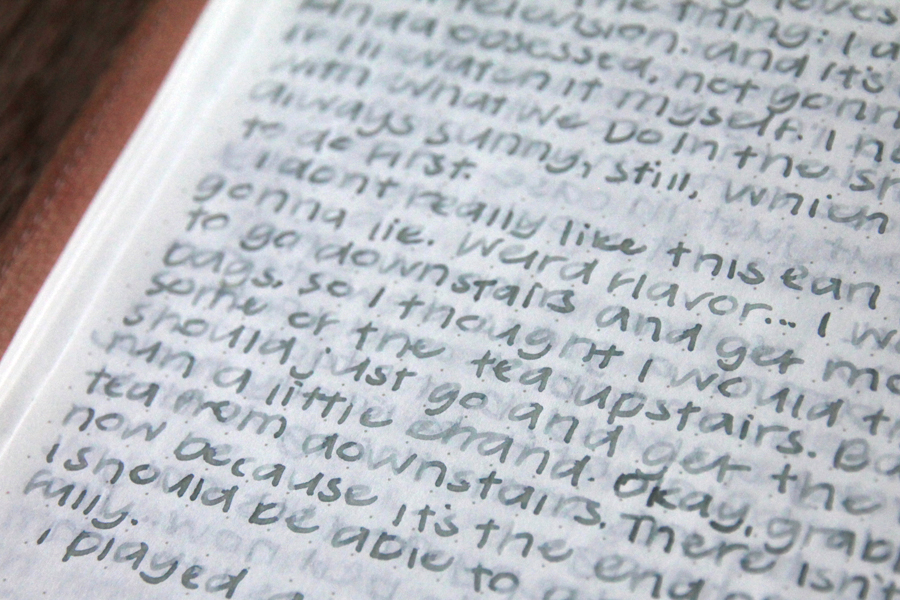 the thing: I a
television. and it's
obsessed, not gonn
watch it myself. I
with what we do in the sh
always sunny, still, which
to do first.
I dont really like this ean
gonna lie. Weird flavor... I w
to go downstairs and get mo
bags, so I thought I would t
some of the tea upstairs. Ba
should just go and get the
run a little errand. Okay, grab
tea from downstairs. There isn't
now because it's the end
I should be able to
fully.
I played